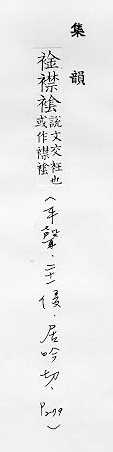 集韻
䘳襟
說文交衽也
或作襟
(平聲.二十一侵.居吟切.P279)